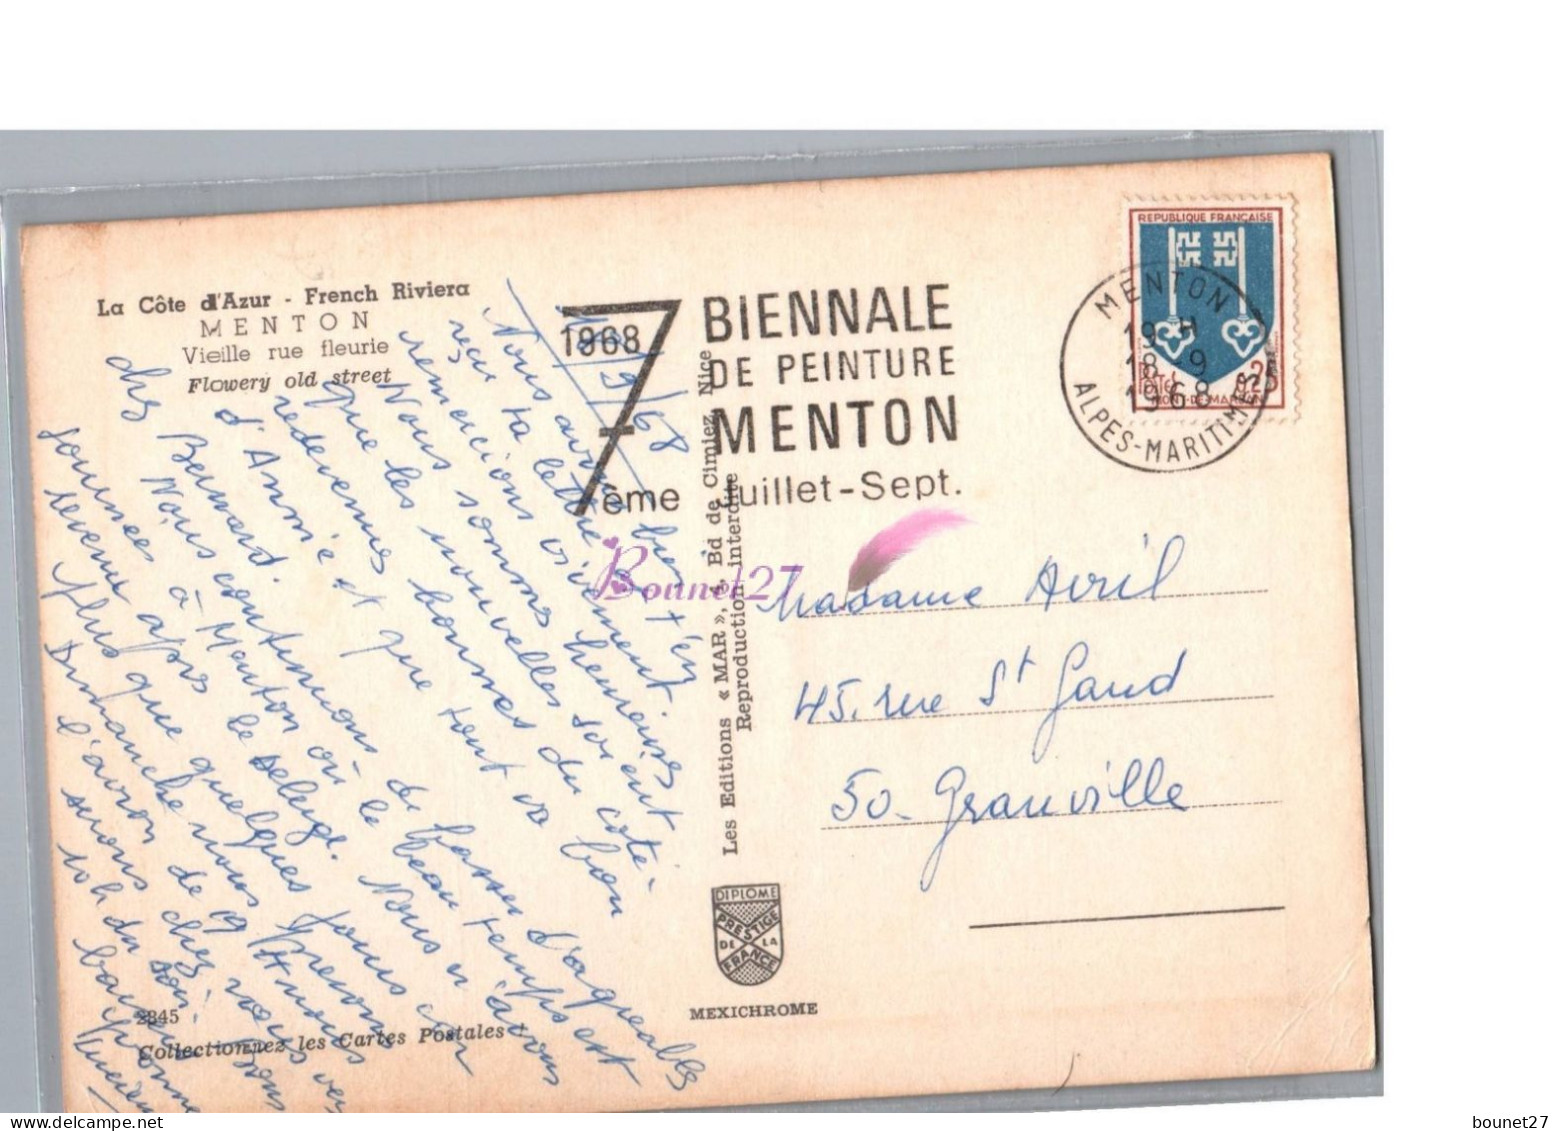 La Côte d'Azur - French Riviera
MENTON
Vieille rue fleurie
Flowery old street
18/9/68
Nous avons bien
reçu ta lettre et t'en
remercions vivement
Nous sommes heureuses
que les nouvelles soient
redevenues bonnes du côté
d'Annie et que tout va bon
chez Bernard.
Nous continuons de passer d'agréables
journées à Menton où le beau temps est
revenu après le déluge. Nous n'avons
plus que quelques jours car
Dimanche nous prenons
l'avion de 19 H nous
serons chez vous vers
10h du soir. Bons
baisers
1968
7ème
BIENNALE
DE PEINTURE
MENTON
Juillet-Sept.
REPUBLIQUE FRANÇAISE
POSTES
0,25
MONT-DE-MARSAN
MENTON
19 H
18 9
1968
ALPES-MARITIMES
Bounet27
Les Editions « MAR », 4, Bd de Cimiez, Nice
Reproduction interdite
Madame Avril
45, rue St Gaud
50- Granville
DIPLOME
PRESTIGE
DE LA
FRANCE
MEXICHROME
2345
Collectionnez les Cartes Postales
bounet27